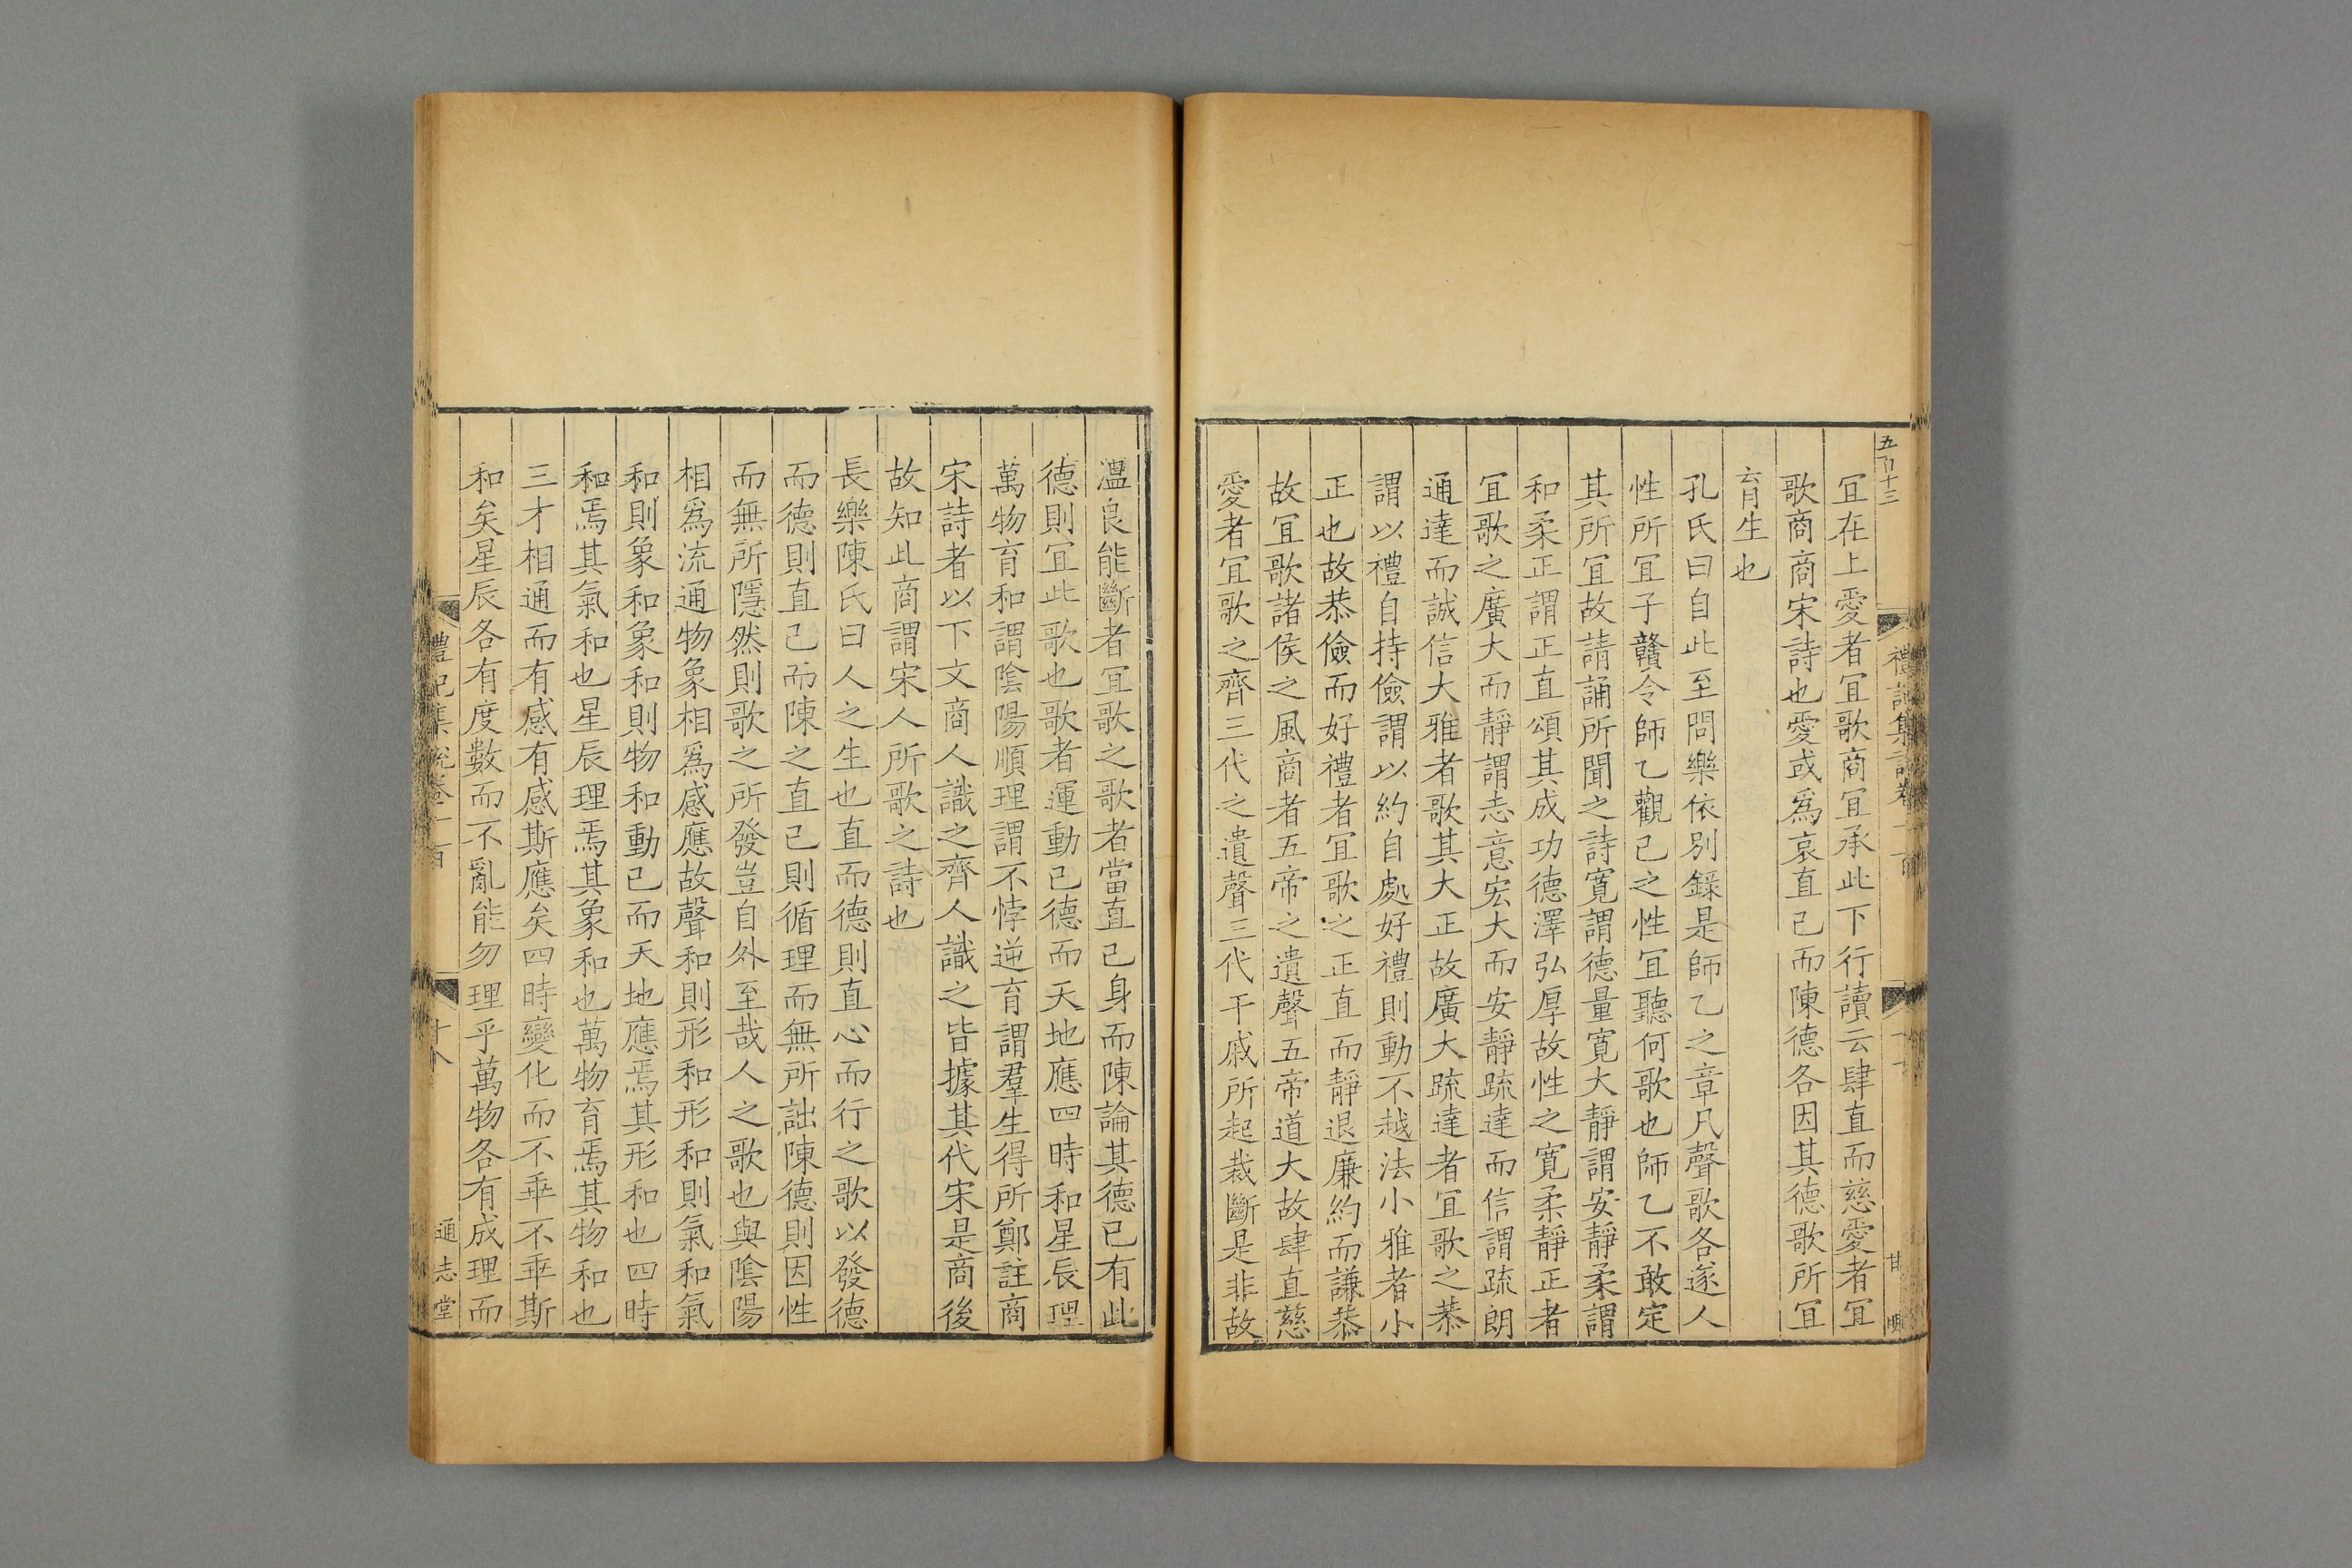 五百十三
禮記集說卷一百
宜在上愛者宜歌商宜承此下行讀云肆直而慈愛者宜
歌商商宋詩也愛或爲哀直己而陳德各因其德歌所宜
育生也
孔氏曰自此至問樂依別錄是師乙之章凡聲歌各逐人
性所宜子贛令師乙觀己之性宜聽何歌也師乙不敢定
其所宜故請誦所聞之詩寬謂德量寬大靜謂安靜柔謂
和柔正謂正直頌其成功德澤弘厚故性之寬柔靜正者
宜歌之廣大而靜謂志意宏大而安靜疏達而信謂疏朗
通達而誠信大雅者歌其大正故廣大疏達者宜歌之恭
謂以禮自持儉謂以約自處好禮則動不越法小雅者小
正也故恭儉而好禮者宜歌之正直而靜退廉約而謙恭
故宜歌諸侯之風商者五帝之遺聲五帝道大故肆直慈
愛者宜歌之齊三代之遺聲三代干戚所起裁斷是非故
溫良能斷者宜歌之歌者當直己身而陳論其德已有此
德則宜此歌也歌者運動己德而天地應四時和星辰理
萬物育和謂陰陽順理謂不悖逆育謂羣生得所鄭註商
宋詩者以下文商人識之齊人識之皆據其代宋是商後
故知此商謂宋人所歌之詩也
長樂陳氏曰人之生也直而德則直心而行之歌以發德
而德則直己而陳之直己則循理而無所詘陳德則因性
而無所隱然則歌之所發豈自外至哉人之歌也與陰陽
相爲流通物象相爲感應故聲和則形和形和則氣和氣
和則象和象和則物和動己而天地應焉其形和也四時
和焉其氣和也星辰理焉其象和也萬物育焉其物和也
三才相通而有感有感斯應矣四時變化而不乖不乖斯
和矣星辰各有度數而不亂能勿理乎萬物各有成理而
禮記集說卷一百
十八
通志堂